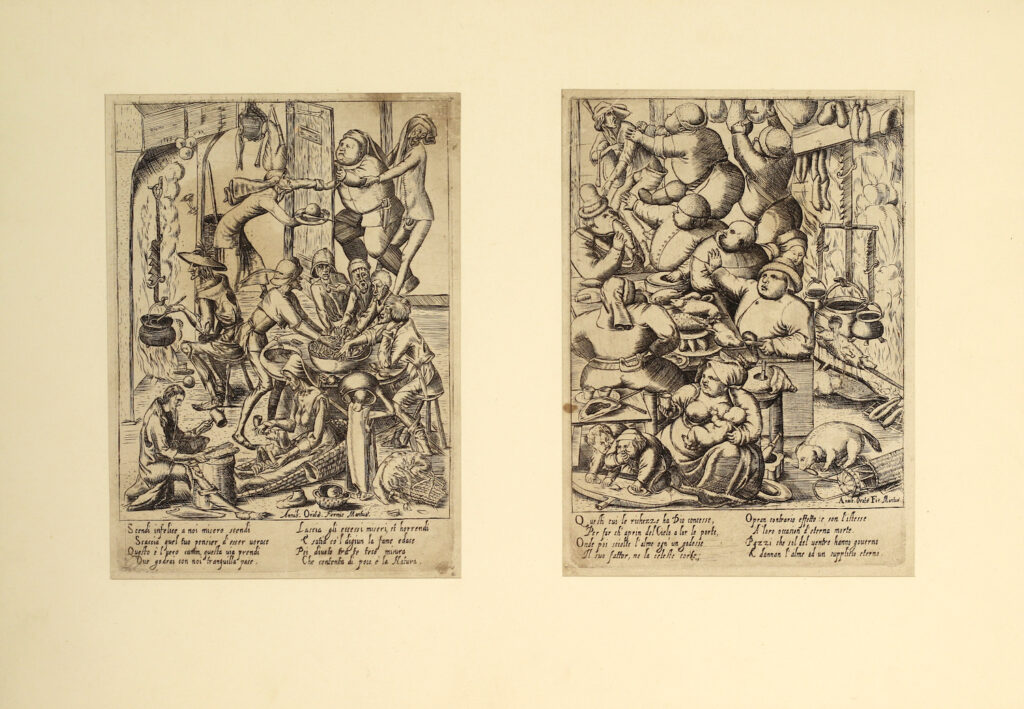 Annib. Orald. Formis Mantue.
Scendi infelice a noi misero scendi
Scaccia quel tuo pensier, d'esser vorace
Questo è l'vero camin, quella via prendi
Che godrai con noi tranquilla pace.
Lascia gli eccessi miseri, et horrendi
E satia co'l digiun la fame edace
Poi divale misura
Che contenta di poco è la Natura.
Annib. Orald. For. Mantue.
Questi cui le richezze ha Dio concesse,
Per far ch'aprin del Cielo a lor le porte,
Onde poi sciolte l'alme ogn'un godesse
Il suo fattor, ne la celeste corte,
Opran contrario effetto e son l'istesse
A loro occasion d'eterna morte.
Pazzi che sol del ventre hanno governo
E dannan l'alme ad un supplitio eterno.